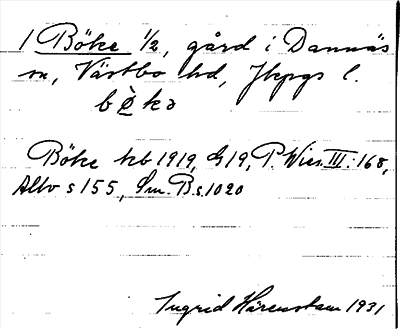 1 Böke 1/2, gård i Dannäs
sn, Västbo hd, Jkpgs l.
bèkə
Böke kb 1919, G19, P. Wies. III: 168,
Allv s 155, Sm. B. s. 1020
Ingrid Härenstam 1931